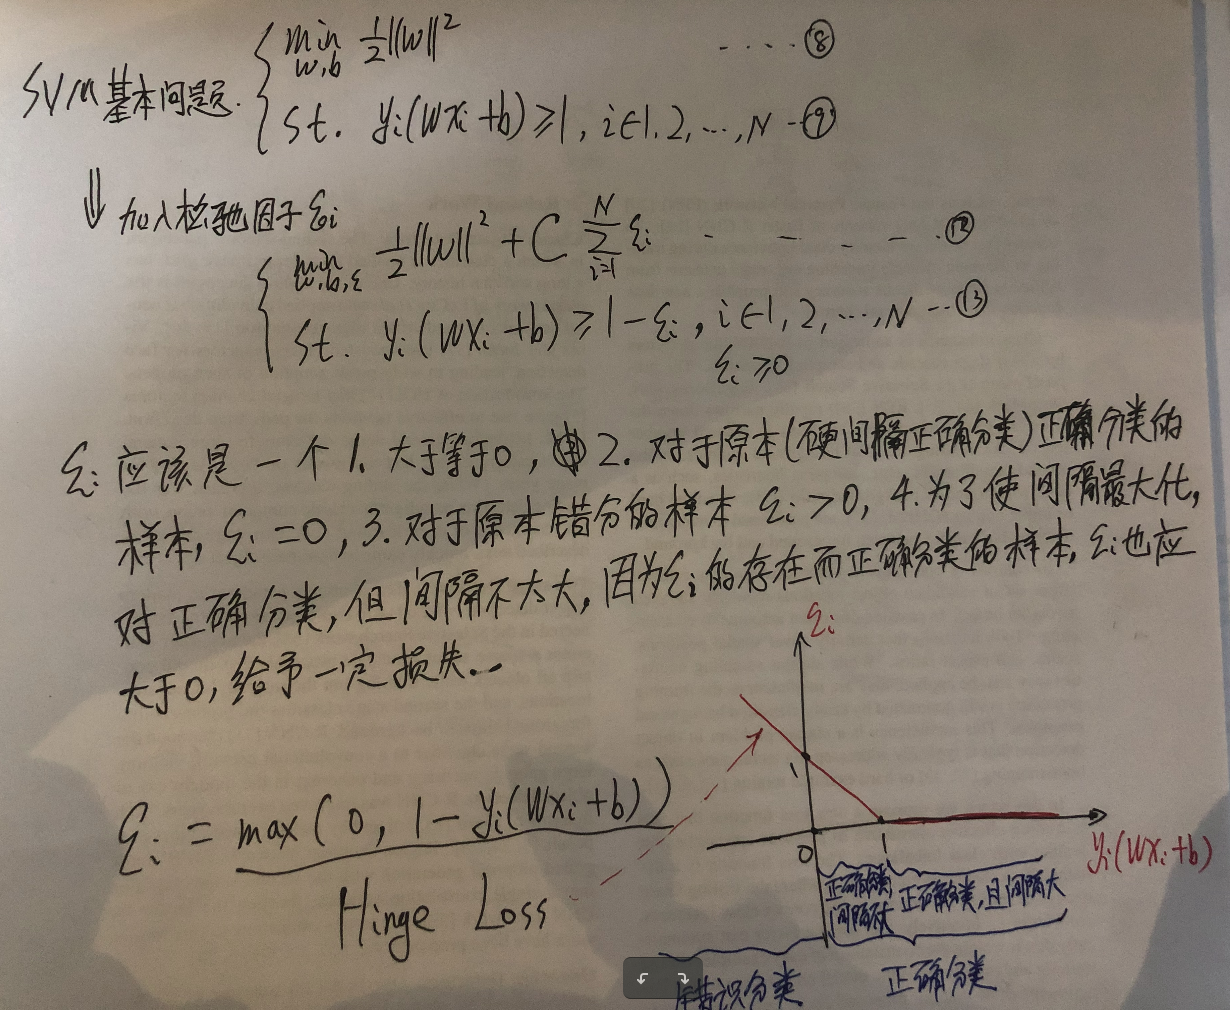 SVM基本问题
min w,b ½||w||² ····⑧
st. yi(wxi+b)≥1, i∈1,2,…,N -⑨
⇓ 加入松弛因子ξi
min w,b,ξ ½||w||² + C ∑_{i=1}^{N} ξi - - - - ·⑫
st. yi(wxi+b)≥1-ξi, i∈1,2,…,N --⑬
ξi≥0
ξi应该是一个1.大于等于0, 2.对于原本(硬间隔正确分类)正确分类的
样本, ξi=0, 3.对于原本错分的样本 ξi>0, 4.为了使间隔最大化,
对正确分类,但间隔不太大,因为ξi的存在而正确分类的样本,ξi也应
大于0,给予一定损失..
ξi = max(0, 1-yi(wxi+b))
Hinge Loss
ξi
1
0
1
yi(wxi+b)
正确分类,
间隔不大
正确分类,且间隔大
错误分类
正确分类